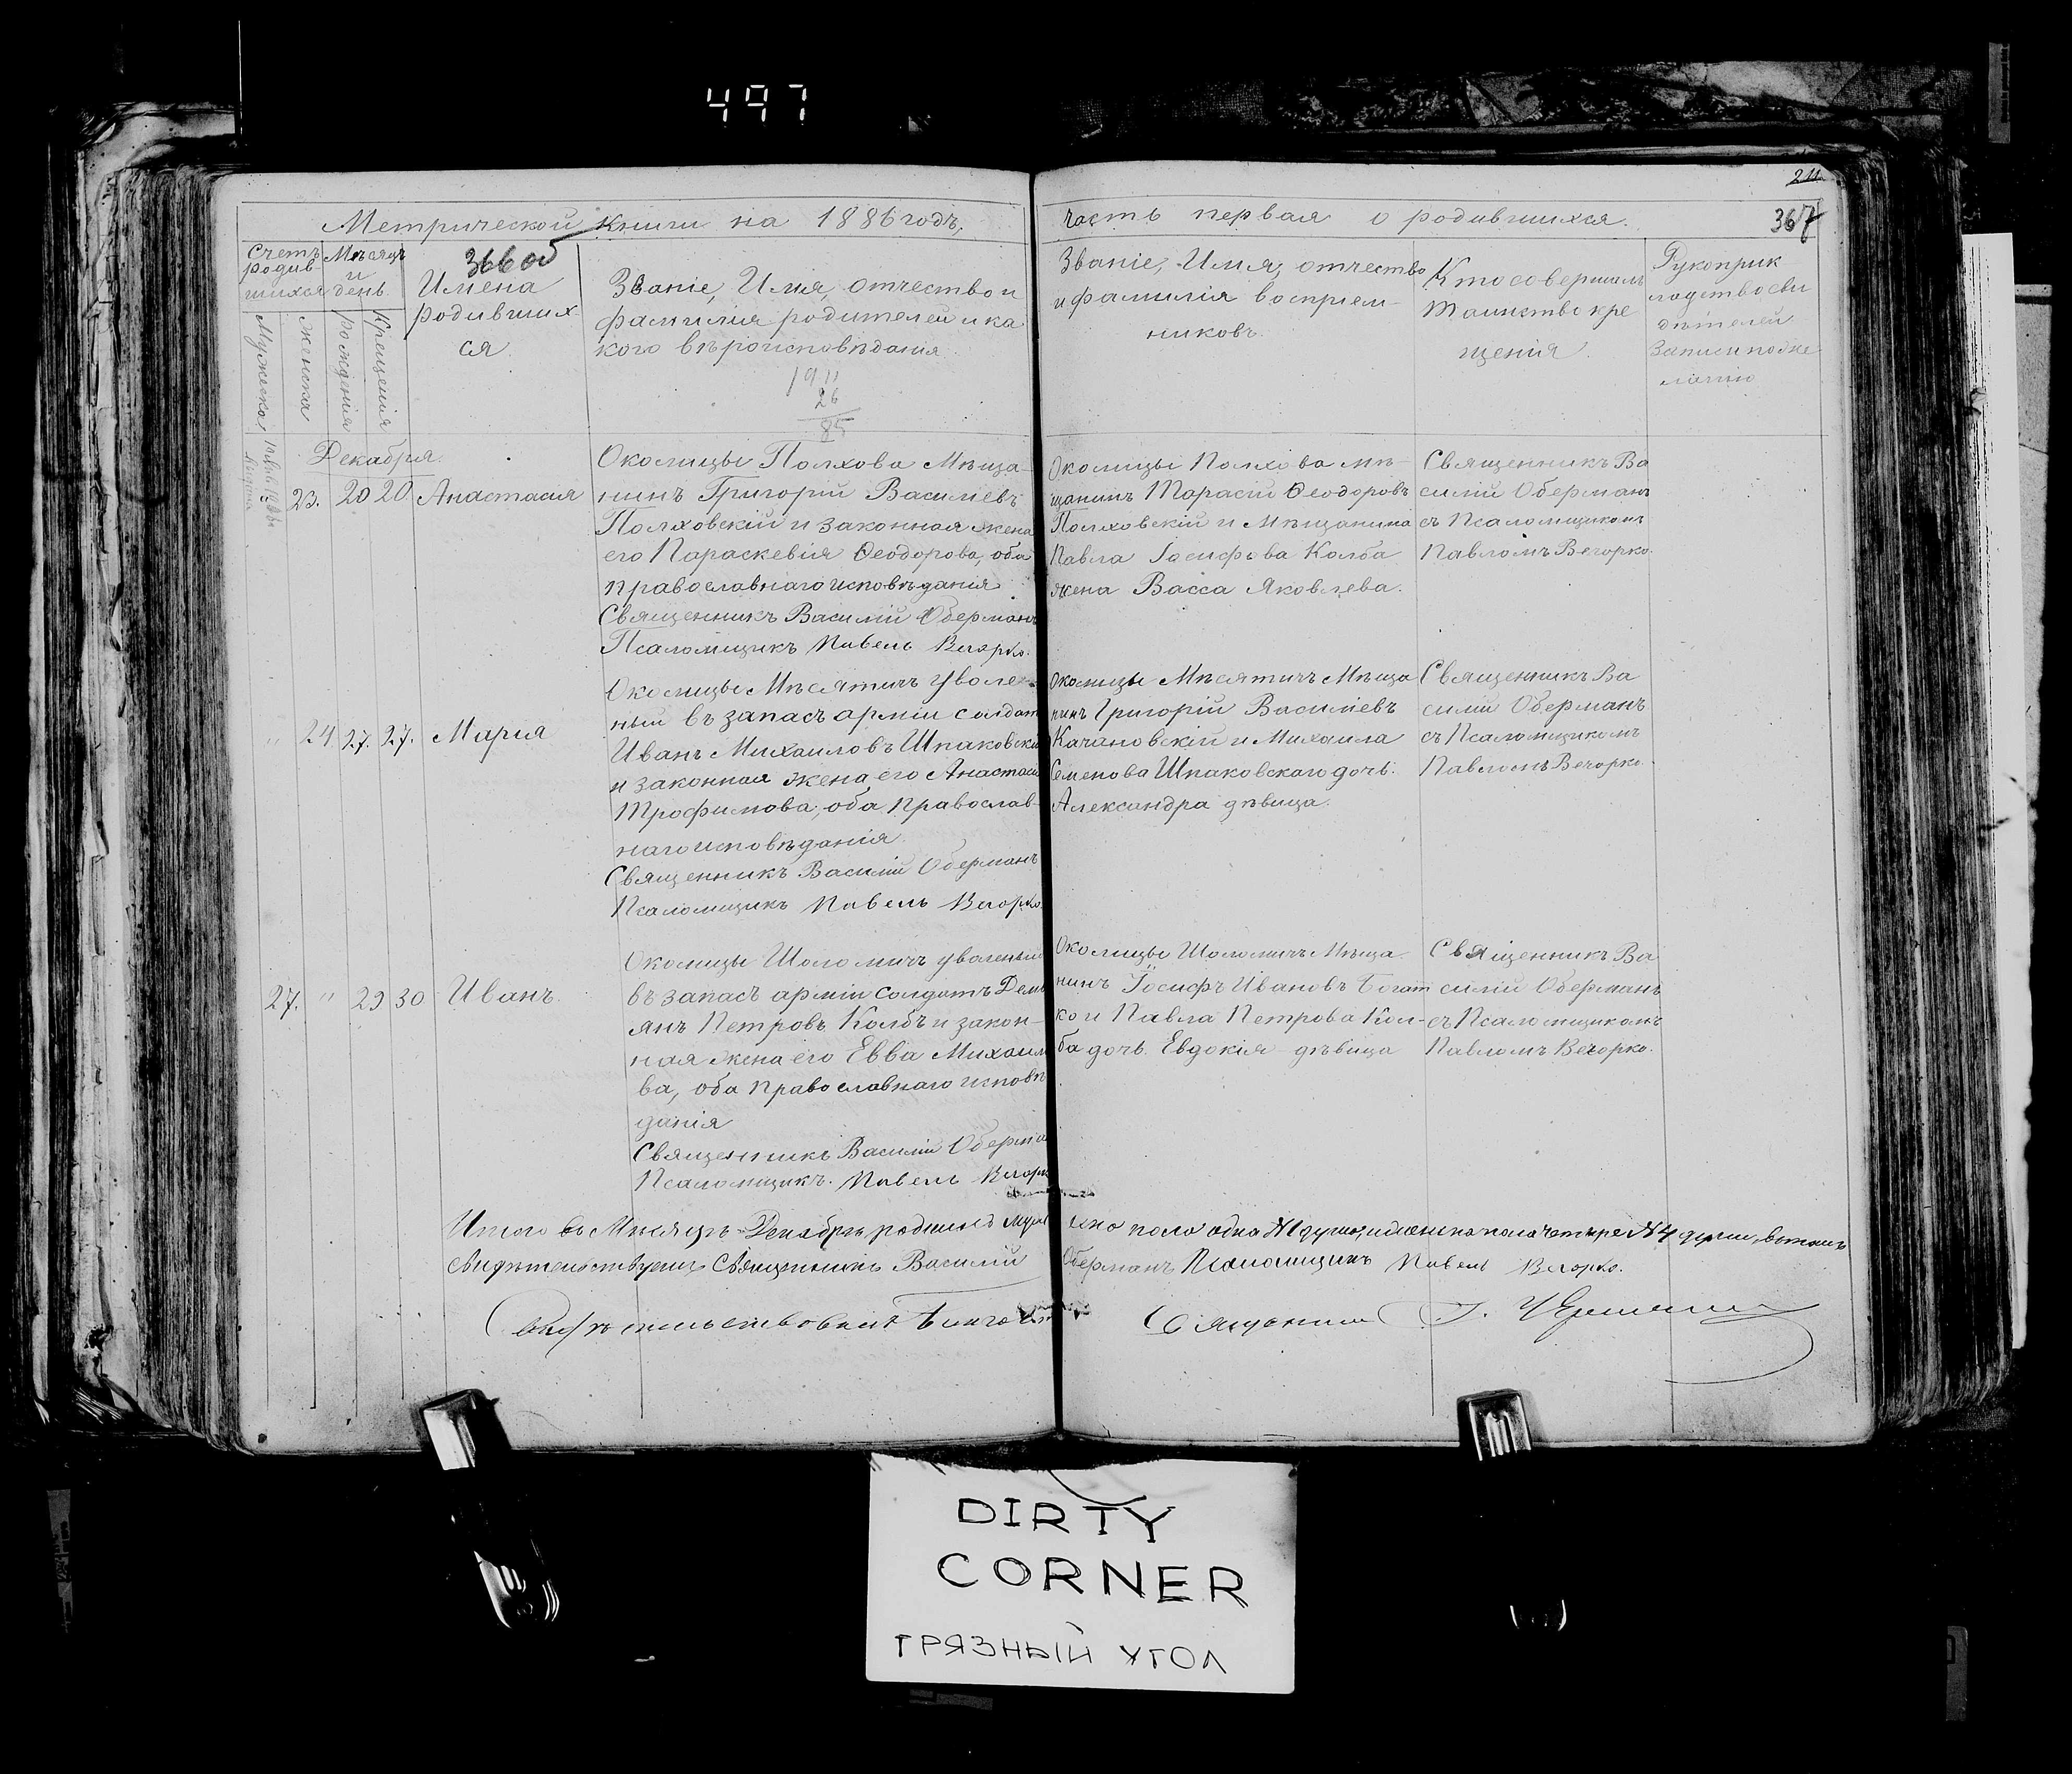 497
211
Метрической книги на 1886 годъ,
часть первая о родившихся.
367
366 об
Счетъ родив-
шихся
Мужеска
Женска
Мѣсяцъ
и
день
Рожденія
Крещенія
Имена
родивших
ся.
Званіе, Имя, отчество и
фамилія родителей и ка
кого вѣроисповѣданія
1911
26
85
Званіе, Имя, отчество
и фамилія воспріем-
никовъ.
Кто совершалъ
таинство кре
щенія.
Рукоприк
ладство сви
дѣтелей
записи по же
ланію
Декабря.
23. 20 20. Анастасия
Околицы Полхова Мѣща-
нинъ Григорій Василіевъ
Полховскій и законная жена
его Параскевія Ѳеодорова, оба
православнаго исповѣданія
Священникъ Василій Оберманъ
Псаломщикъ Павелъ Вечорко.
Околицы Полхова мѣ-
щанинъ Тарасій Ѳеодоровъ
Полховскій и Мѣщанина
Павла Іосифова Колба
жена Васса Яковлева.
Священникъ Ва
силій Оберманъ
съ Псаломщикомъ
Павломъ Вечорко.
" 24 27. 27. Мария
Околицы Мѣсятичъ уволе-
ный въ запасъ арміи солдатъ
Иванъ Михаиловъ Шпаковскій
и законная жена его Анастасія
Трофимова, оба православ-
наго исповѣданія
Священникъ Василій Оберманъ
Псаломщикъ Павелъ Вечорко.
Околицы Мѣсятичъ Мѣща
нинъ Григорій Василіевъ
Качановскій и Михаила
Семенова Шпаковскаго дочь.
Александра дѣвица.
Священникъ Ва
силій Оберманъ
съ Псаломщикомъ
Павломъ Вечорко.
27. " 29 30 Иванъ.
Околицы Шоломичъ уволеный
въ запасъ арміи Солдатъ Демь
янъ Петровъ Колбъ и закон-
ная жена его Евва Михаило
ва, оба православнаго исповѣ
данія
Священникъ Василій Оберма
Псаломщикъ. Павелъ Вечорк
Околицы Шоломичъ Мѣща-
нинъ Іосифъ Ивановъ Богат
ко и Павла Петрова Кол-
ба дочь Евдокія дѣвица
Священникъ Ва
силій Оберманъ
съ Псаломщикомъ
Павломъ Вечорко.
Итого въ Мѣсяцѣ Декабрѣ родилось мужескаго пола одна №1 душа, и женска пола четыре №4 души, въ томъ
свидѣтельствуемъ Священникъ Василій Оберманъ Псаломщикъ Павелъ Вечорко.
Свидѣтельствовалъ Священникъ
DIRTY
CORNER
ГРЯЗНЫЙ УГОЛ